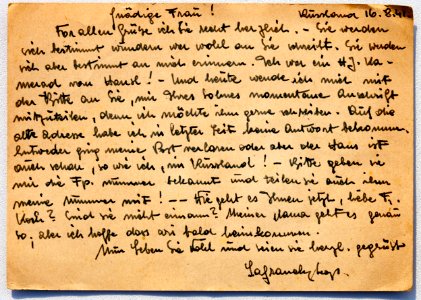 Gnädige Frau! Russland 16.8.41
Vor allem Grüße ich Sie recht herzlich. - Sie werden
sich bestimmt wundern wer wohl an Sie schreibt. Sie werden
sich aber bestimmt an mich erinnern. Ich war ein H.J. Ka-
merad von Hansl! - Und heute wende ich mich mit
der Bitte an Sie, mir Ihres Sohnes momentane Anschrift
mitzuteilen, denn ich möchte ihm gerne schreiben. Auf die
alte Adresse habe ich in letzter Zeit keine Antwort bekommen.
Entweder ging meine Post verloren oder aber der Hans ist
auch schon, so wie ich, in Russland! - Bitte geben sie
mir die Fp. nummer bekannt und teilen sie auch ihm
meine Nummer mit! -- Wie geht es Ihnen jetzt, liebe Fr.
Koch? Sind sie nicht einsam? Meiner Mama geht es genau
so; aber ich hoffe dass wir bald heimkommen.
Nun leben Sie Wohl und seien sie herzl. gegrüßt